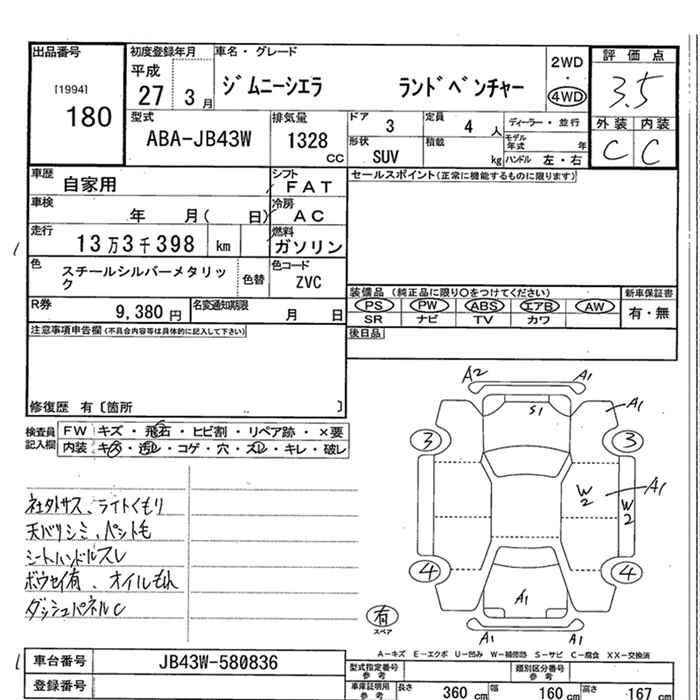 出品番号
[1994]
180
初度登録年月
平成
27 3月
車名・グレード
ジムニーシエラ ランドベンチャー
2WD
・
4WD
評価点
3.5
外装 内装
C C
型式
ABA-JB43W
排気量
1328
CC
ドア 3
定員 4 人
ディーラー・並行
形状 SUV
積載 kg
モデル年式 年
ハンドル 左・右
車歴
自家用
シフト
FAT
セールスポイント(正常に機能するものに限ります)
車検
年 月( 日)
冷房
AC
走行
13万3千398 km
燃料
ガソリン
色
スチールシルバーメタリック
色替
色コード
ZVC
R券
9,380円
名変通知期限
月 日
装備品 (純正品に限り○をつけてください)
PS PW ABS エアB AW
SR ナビ TV カワ
新車保証書
有・無
注意事項申告欄(不具合内容等は具体的に記入して下さい)
後日品
修復歴 有〔箇所 〕
検査員記入欄
FW キズ・飛石・ヒビ割・リペア跡・×要
内装 キズ・汚レ・コゲ・穴・スレ・キレ・破レ
社外サス、ライトくもり
天バリシミ、ペットも
シートハンドルスレ
ボウセイ有、オイルもれ
ダッシュパネルC
A2 A1
S1
A1
3 3
W2 A1
W2
4 4
A1
有
スペア
A1 A1
A-キズ E-エクボ U-凹み W-補修跡 S-サビ C-腐食 XX-交換済
車台番号
JB43W-580836
登録番号
型式指定番号
参考
類別区分番号
参考
車庫証明用
参考
長さ 360 cm
幅 160 cm
高さ 167 cm